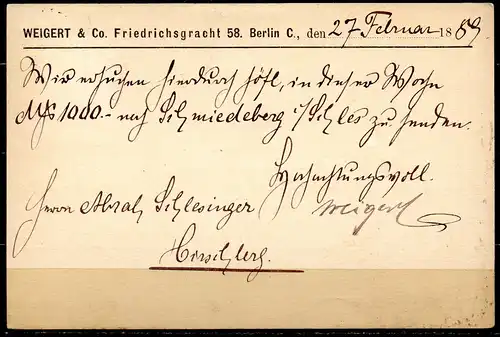 WEIGERT & Co. Friedrichsgracht 58. Berlin C., den 27 Februar 1889
Wir ersuchen hierdurch höfl, in dieser Woche
1000.- nach Schmiedeberg i/Schles zu senden.
Hochachtungsvoll.
Weigert
Herrn Abrah. Schlesinger
Hirschberg.